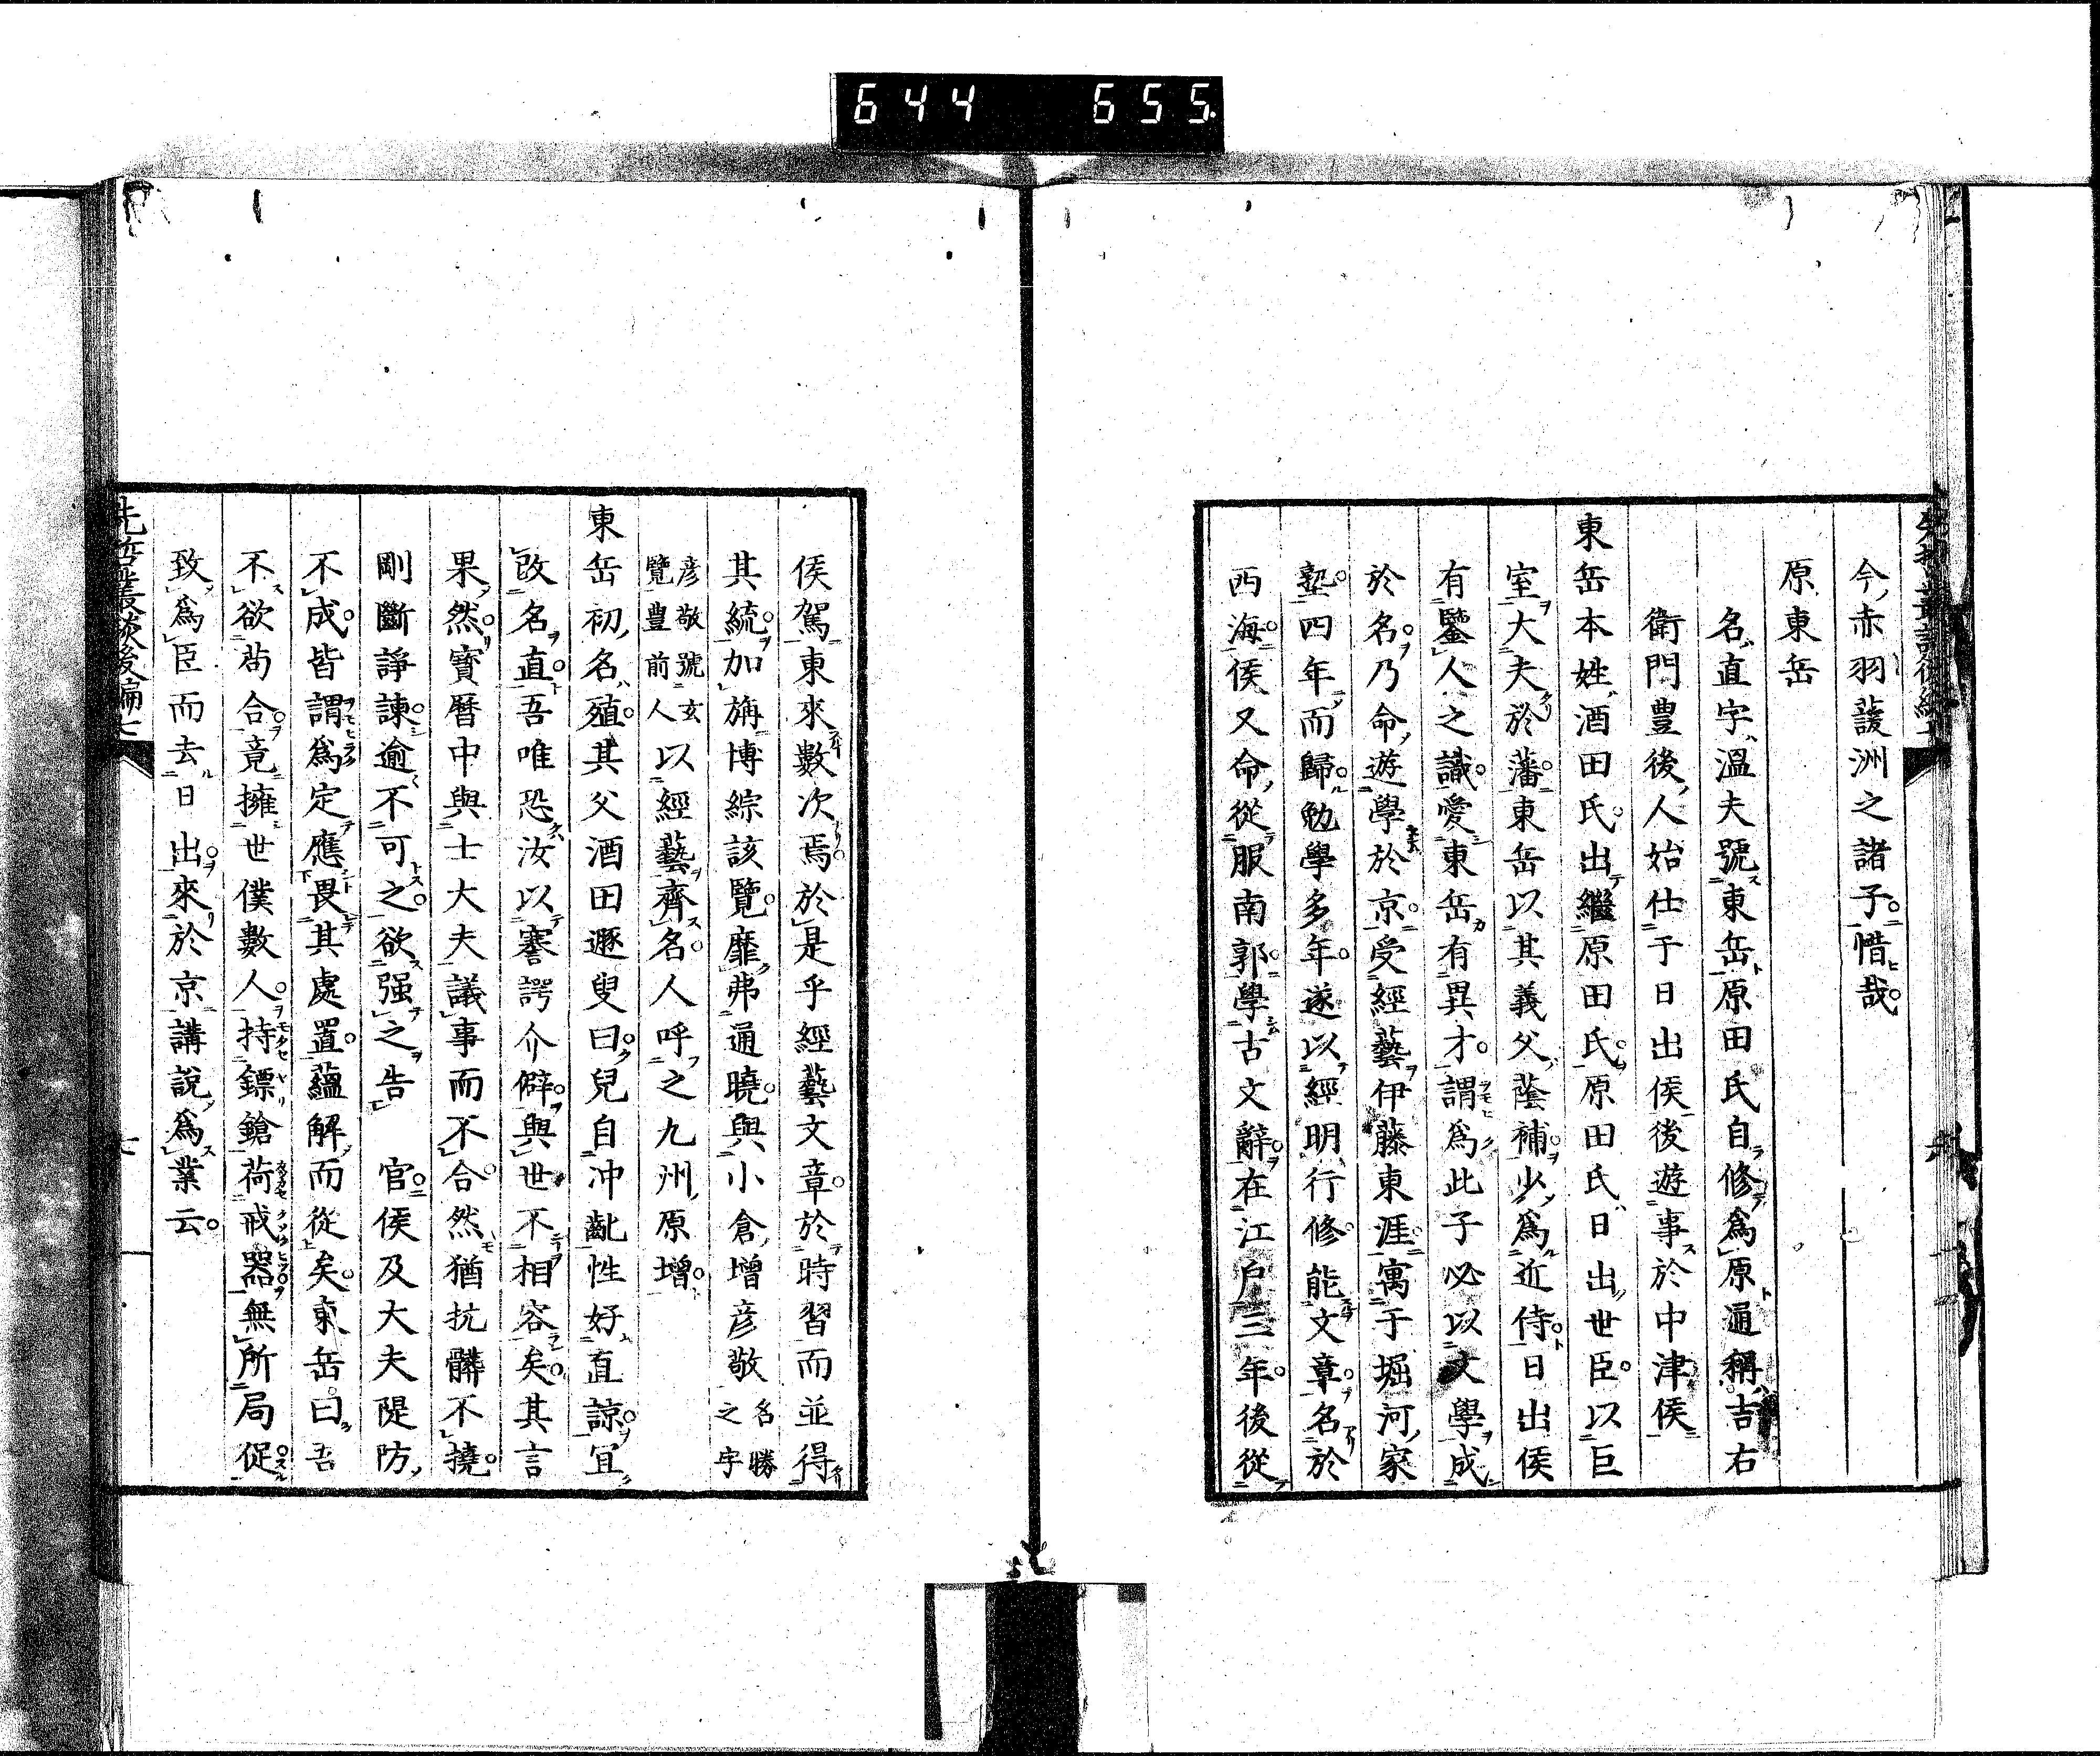 644 655
今赤羽䕶洲之諸子惜哉
原東岳
名直字溫夫號東岳原田氏自修爲原通稱吉右
衛門豊後人始仕于日出侯後遊事於中津侯
東岳本姓酒田氏出繼原田氏原田氏日出世臣以巨
室大夫於藩東岳以其義父蔭補少爲近侍日出侯
有鑒人之識愛東岳有異才謂爲此子必以文學成
於名乃命遊學於京受經藝伊藤東涯寓于堀河家
塾四年而歸勉學多年遂以經明行修能文章名於
西海侯又命從服南郭學古文辭在江戶三年後從
侯駕東來數次焉於是乎經藝文章於時習而並得
其統加旃博綜該覽靡弗通曉與小倉增彦敬名勝之字
彦敬號玄覽豊前人以經藝齊名人呼之九州原增
東岳初名殖其父酒田遯叟曰兒自冲齔性好直諒宜
改名直吾唯恐汝以謇諤介僻與世不相容矣其言
果然寶曆中與士大夫議事而不合然猶抗髒不撓
剛斷諍諫逾不可之欲强之告 官侯及大夫隄防
不成皆謂爲定應畏其處置蘊解而從矣東岳曰吾
不欲苟合竟擁世僕數人持鏢鎗荷戒器無所局促
致爲臣而去日出來於京講說爲業云
先哲叢談後編七
七